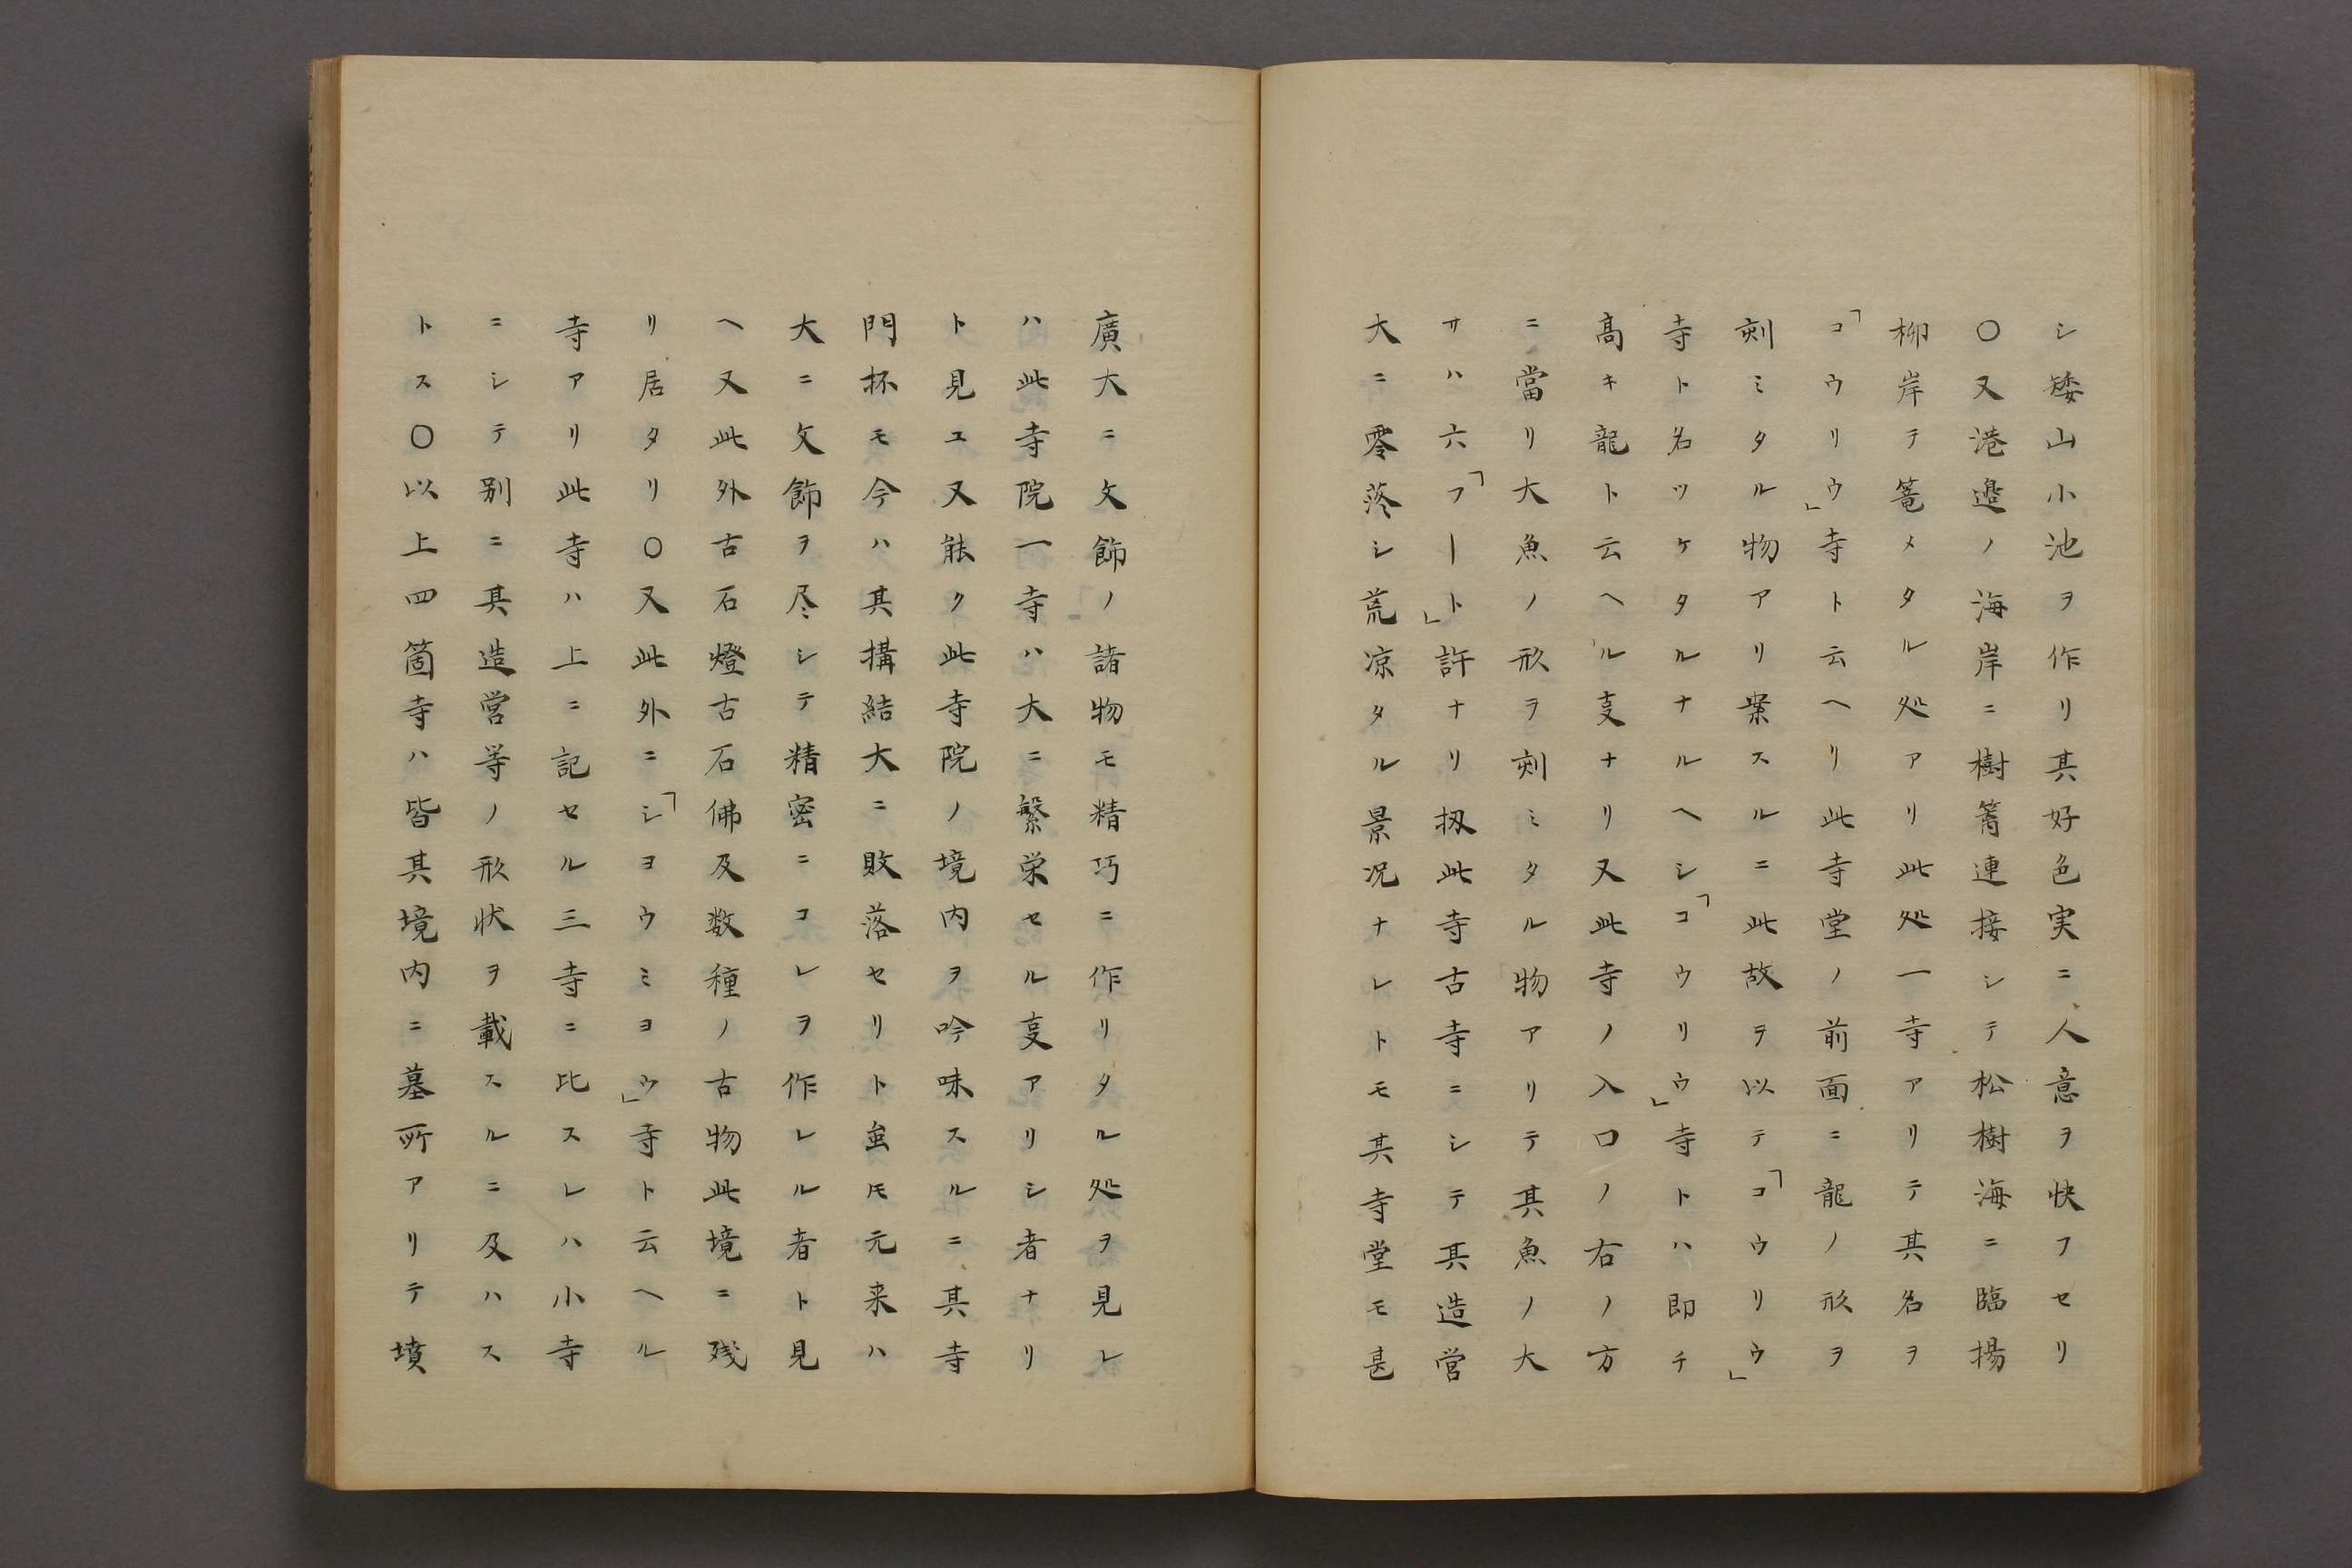 シ矮山小池ヲ作リ其好色実ニ人意ヲ快フセリ
〇又港邉ノ海岸ニ樹篱連接シテ松樹海ニ臨揚
柳岸テ篭メタル処アリ此処一寺アリテ其名ヲ
「コウリウ」寺ト云ヘリ此寺堂ノ前面ニ龍ノ形ヲ
刻ミタル物アリ案スルニ此故ヲ以テ「コウリウ」
寺ト名ツケタルナルヘシ「コウリウ」寺トハ即チ
髙キ龍ト云ヘル叓ナリ又此寺ノ入口ノ右ノ方
ニ當リ大魚ノ形ヲ刻ミタル物アリテ其魚ノ大
サハ六「フート」許ナリ扨此寺古寺ニシテ其造営
大ニ零落シ荒凉タル景况ナレトモ其寺堂モ甚
廣大ニ文飾ノ諸物モ精巧ニ作リタル処ヲ見レ
ハ此寺院一寺ハ大ニ繁栄セル叓アリシ者ナリ
ト見エ又能ク此寺院ノ境内ヲ吟味スルニ其寺
門杯モ今ハ其搆結大ニ敗落セリト虽𪜈元来ハ
大ニ文飾ヲ尽シテ精密ニコレヲ作レル者ト見
ヘ又此外古石燈古石佛及数種ノ古物此境ニ残
リ居タリ〇又此外ニ「シヨウミヨウ」寺ト云ヘル
寺アリ此寺ハ上ニ記セル三寺ニ比スレハ小寺
ニシテ別ニ其造営等ノ形状ヲ載スルニ及ハス
トス〇以上四箇寺ハ皆其境内ニ墓所アリテ墳